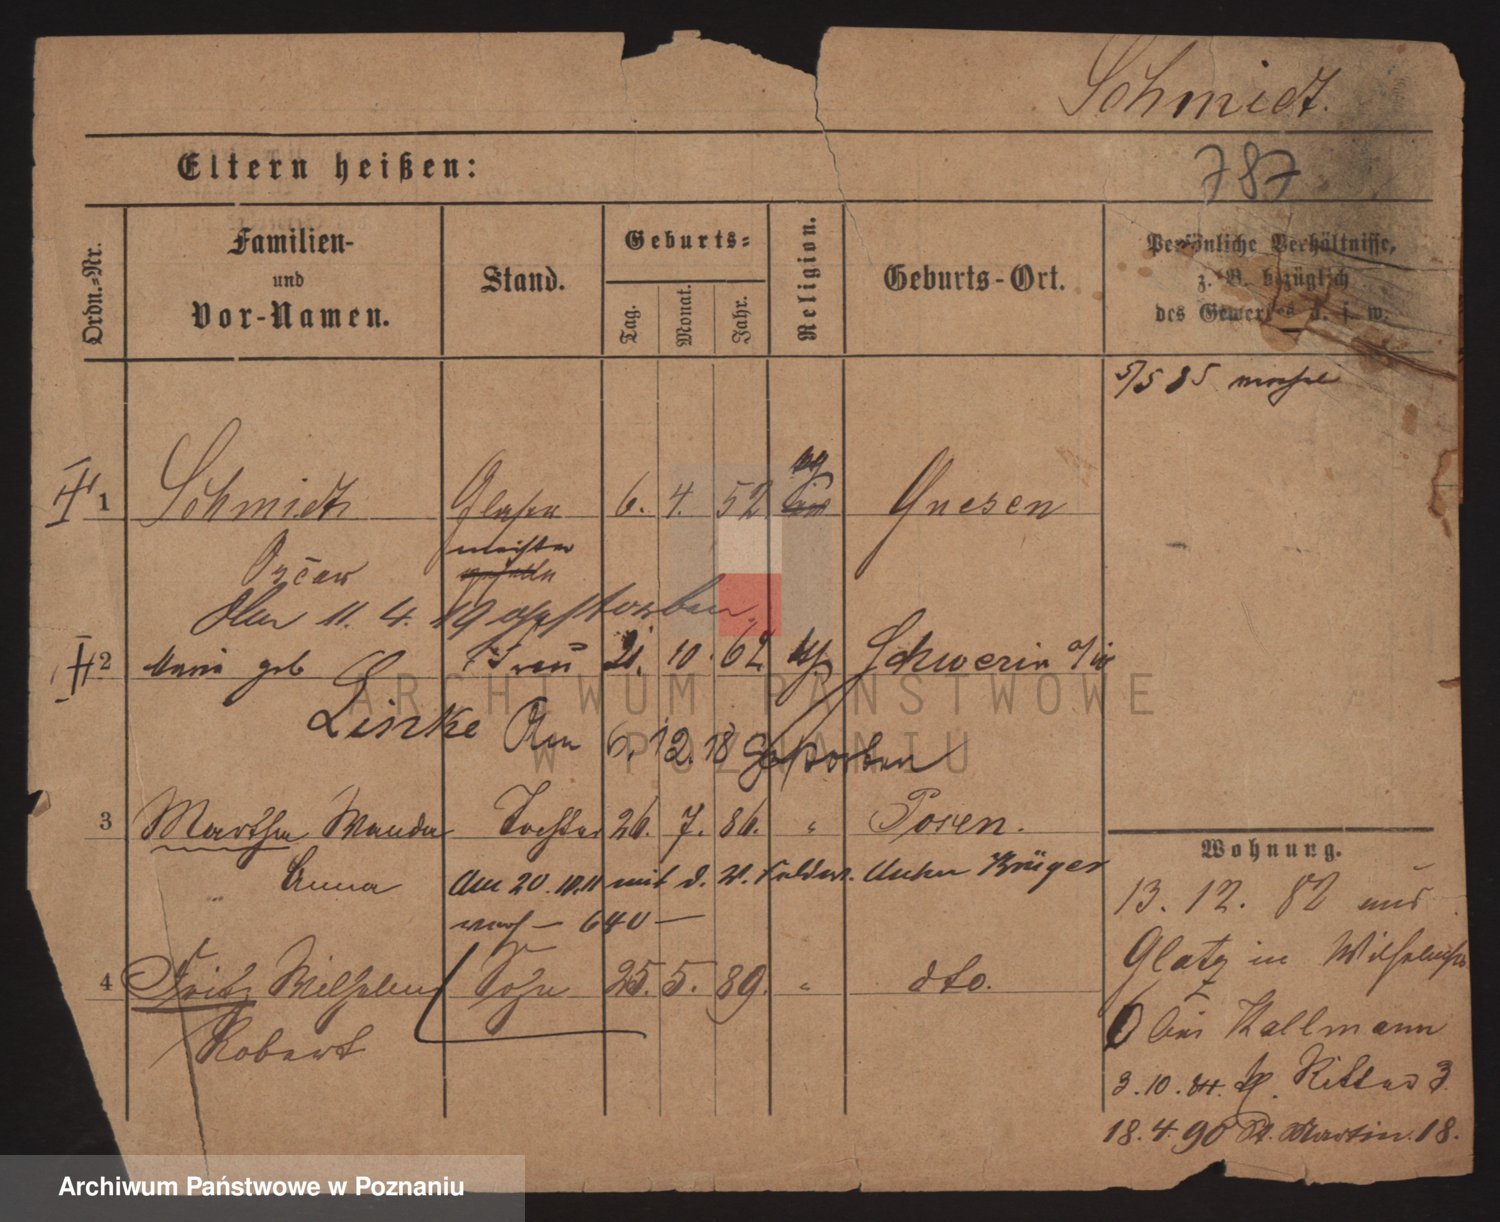 Schmidt.
Eltern heißen:
787
Ordn.-Nr.
Familien-
und
Vor-Namen.
Stand.
Geburts-
Tag.
Monat.
Jahr.
Religion.
Geburts-Ort.
Persönliche Verhältnisse,
z. B. bezüglich
des Gewerbes u. s. w.
5/5 85
1 Schmidt Glaser 6. 4. 52 Gnesen
meister
Oscar
Den 11. 4. 19 gestorben.
2 Maria geb Frau 21. 10. 62 Schwerin
Linke Am 6. 12. 18 gestorben
3 Martha Wanda Tochter 26. 7. 86. " Posen.
Anna Am 20. mit d. Krüger
640
4 Fritz Wilhelm Sohn 25. 5. 89. " dto.
Robert
Wohnung.
13. 12. 82 aus
Glatz in
6 bei Kallmann
3. 10. 84. Ritter 3.
18. 4. 90 St. Martin. 18.
ARCHIWUM PAŃSTWOWE
W POZNANIU
Archiwum Państwowe w Poznaniu